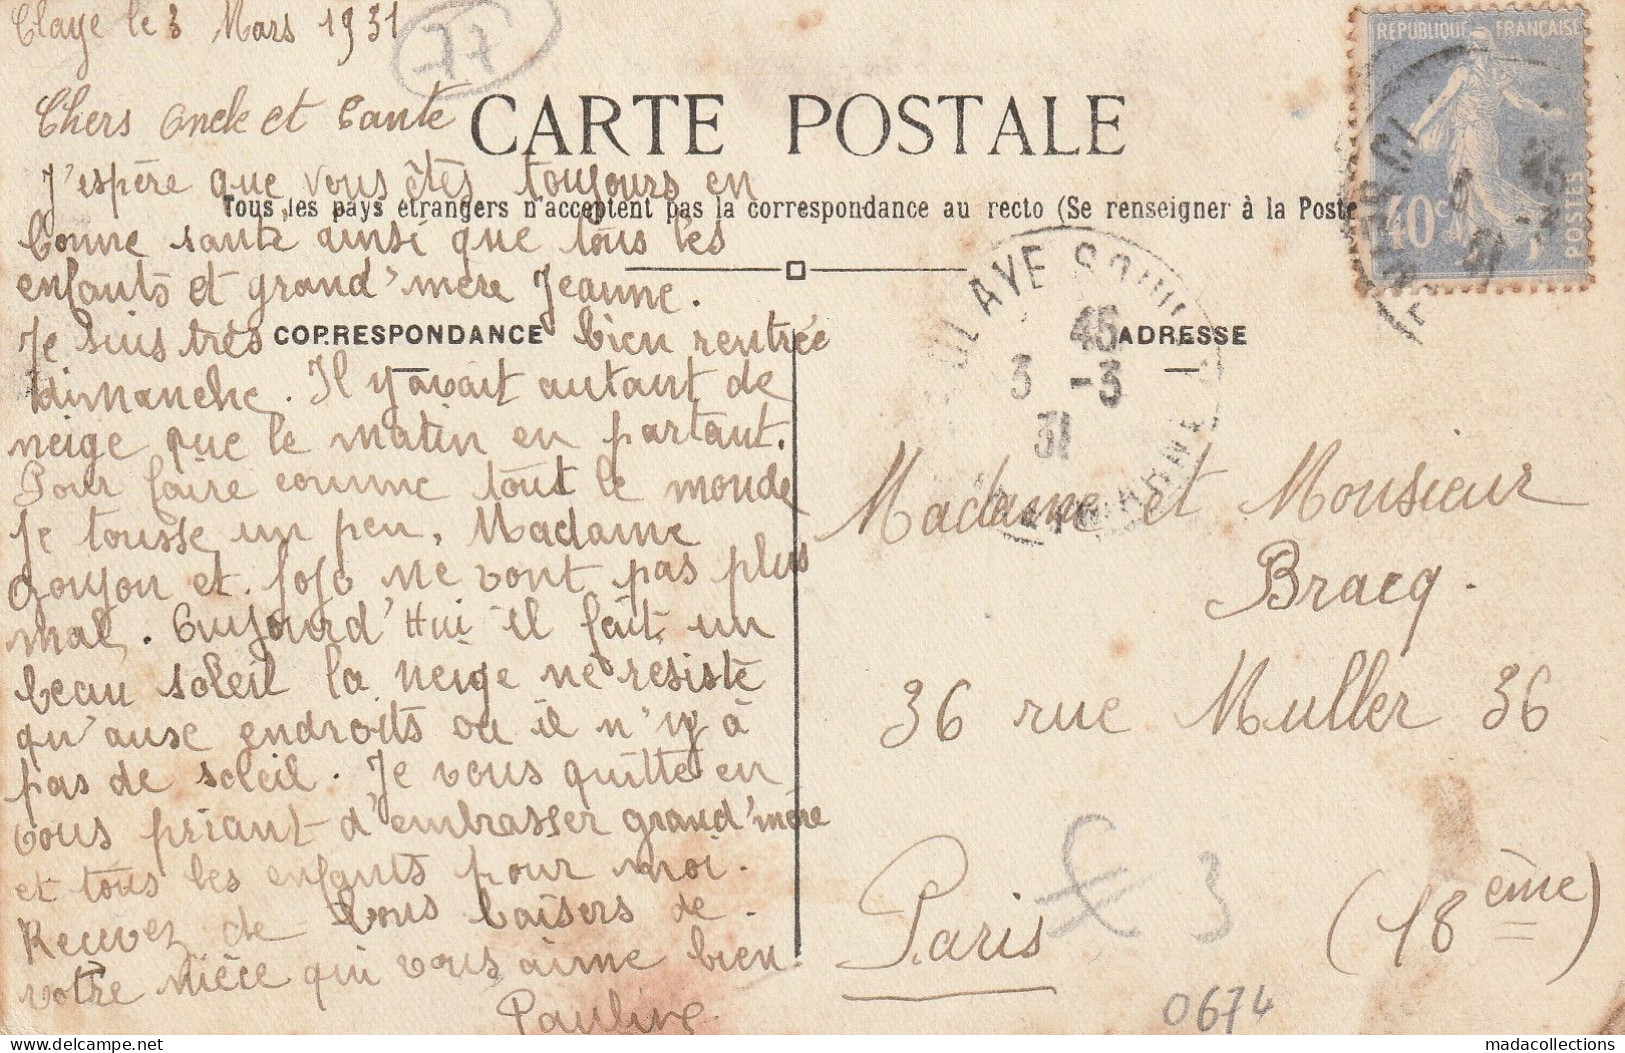 Claye le 3 Mars 1931
77
CARTE POSTALE
Tous les pays étrangers n'acceptent pas la correspondance au recto (Se renseigner à la Poste
CORRESPONDANCE
Chers Oncle et Tante
J'espère que vous êtes toujours en
bonne santé ainsi que tous les
enfants et grand'mère Jeanne.
Je suis très bien rentrée
dimanche. Il y avait autant de
neige que le matin en partant.
Pour faire comme tout le monde
Je tousse un peu, Madame
Goujon et Jojo ne vont pas plus
mal. Aujourd'Hui il fait un
beau soleil la neige ne résiste
qu'ause endroits où il n'y à
pas de soleil. Je vous quitte en
vous priant d'embrasser grand'mère
et tous les enfants pour moi.
Recevez de bons baisers de
votre nièce qui vous aime bien
Pauline
REPUBLIQUE FRANÇAISE
40c
POSTES
CLAYE SOUILLY
45
3 -3
31
ADRESSE
Madame et Monsieur
Bracq.
36 rue Muller 36
Paris (18ème)
3
0674
madacollections